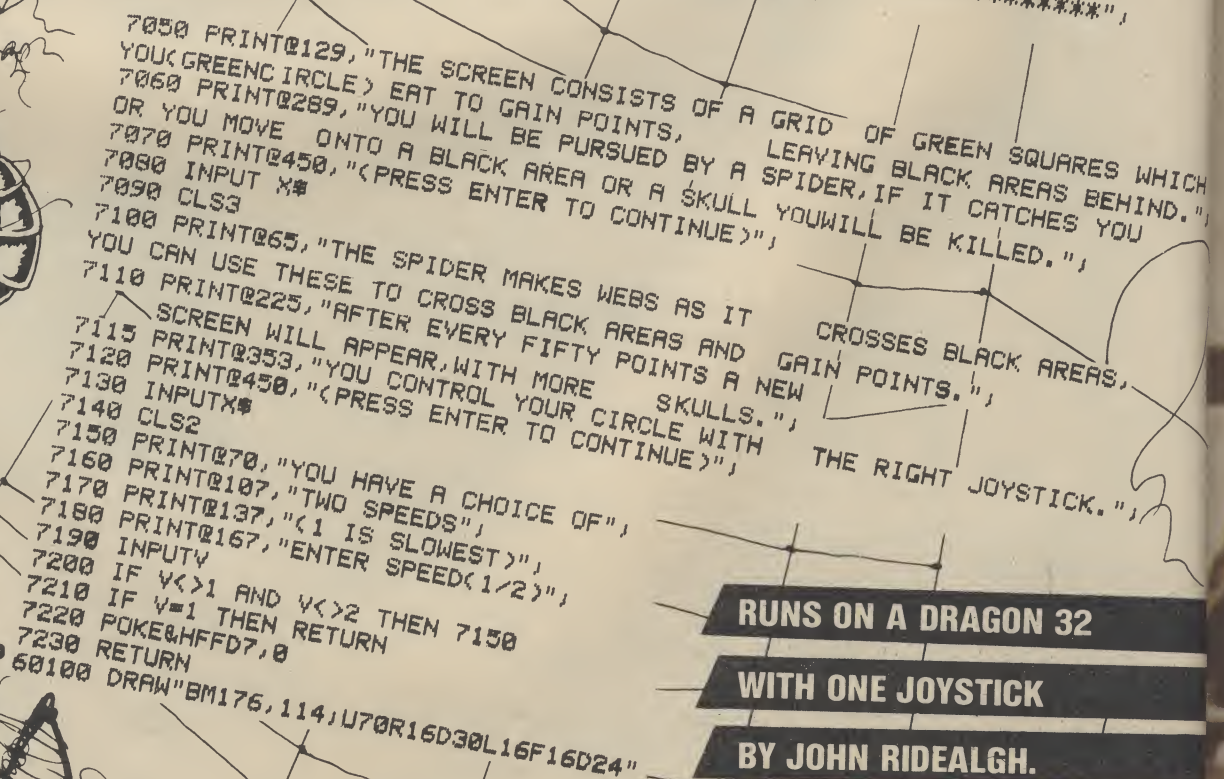 *******";
7050 PRINT@129,"THE SCREEN CONSISTS OF A GRID  OF GREEN SQUARES WHICH
YOU(GREENCIRCLE) EAT TO GAIN POINTS,      LEAVING BLACK AREAS BEHIND.";
7060 PRINT@289,"YOU WILL BE PURSUED BY A SPIDER,IF IT CATCHES YOU
OR YOU MOVE  ONTO A BLACK AREA OR A SKULL YOUWILL BE KILLED.";
7070 PRINT@450,"(PRESS ENTER TO CONTINUE)";
7080 INPUT X$
7090 CLS3
7100 PRINT@65,"THE SPIDER MAKES WEBS AS IT     CROSSES BLACK AREAS,
YOU CAN USE THESE TO CROSS BLACK AREAS AND  GAIN POINTS.";
7110 PRINT@225,"AFTER EVERY FIFTY POINTS A NEW
SCREEN WILL APPEAR,WITH MORE    SKULLS.";
7115 PRINT@353,"YOU CONTROL YOUR CIRCLE WITH    THE RIGHT JOYSTICK.";
7120 PRINT@450,"(PRESS ENTER TO CONTINUE)";
7130 INPUTX$
7140 CLS2
7150 PRINT@70,"YOU HAVE A CHOICE OF";
7160 PRINT@107,"TWO SPEEDS";
7170 PRINT@137,"(1 IS SLOWEST)";
7180 PRINT@167,"ENTER SPEED(1/2)";
7190 INPUTV
7200 IF V<>1 AND V<>2 THEN 7150
7210 IF V=1 THEN RETURN
7220 POKE&HFFD7,0
7230 RETURN
60100 DRAW"BM176,114;U70R16D30L16F16D24"
RUNS ON A DRAGON 32
WITH ONE JOYSTICK
BY JOHN RIDEALGH.